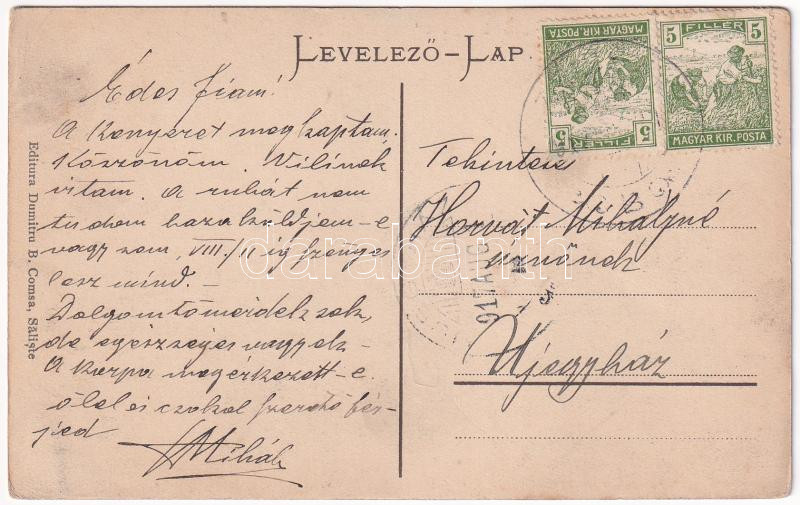 LEVELEZŐ-LAP.
Édes Fiam!
A kenyeret megkaptam.
Köszönöm. Vilinek
irtam. A ruhát nem
tudom haza küldjem-e
vagy sem, VIII./11 ig
lesz mind. -
Dolgom tömérdek sok,
de egészséges vagyok -
A karpa megérkezett-e.
ölel és csókol szerető fér-
jed
Mihály
Editura Dumitru B. Comsa, Săliște
Tekintetes
Horvát Mihályné
úrnőnek
Ujegyház
5 FILLÉR 5
MAGYAR KIR. POSTA
5 FILLÉR 5
MAGYAR KIR. POSTA
917 AUG
darabanth